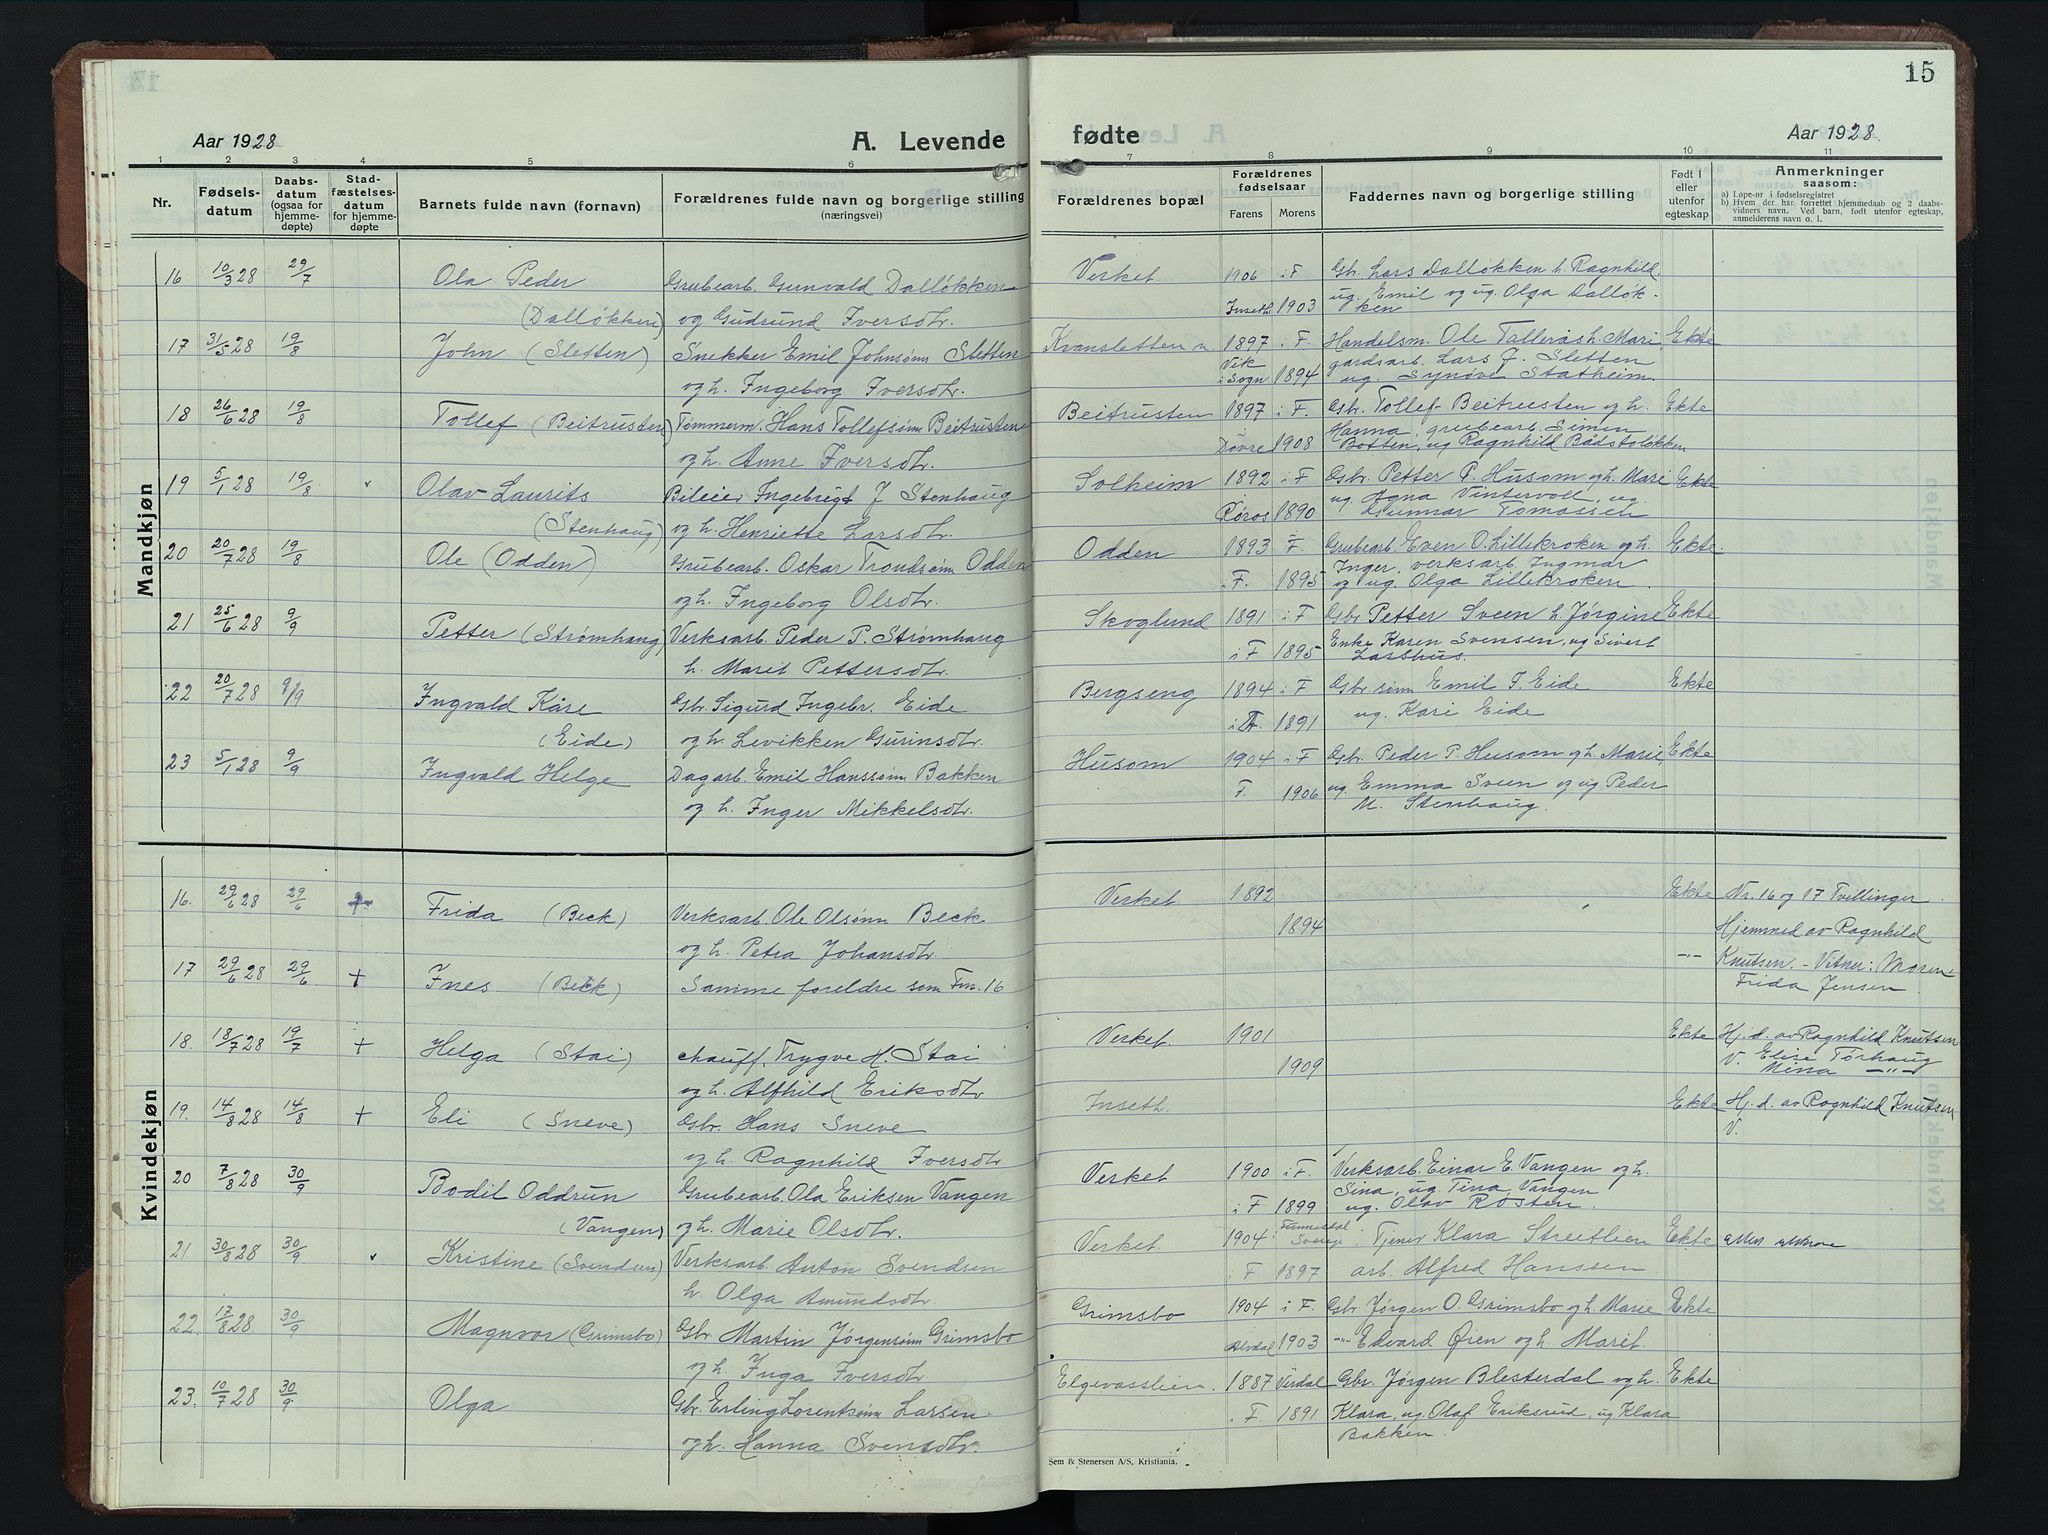 Aar 1928
A. Levende
1 2 3 4 5 6
Nr.
Fødsels-
datum
Daabs-
datum
(ogsaa for
hjemme-
døpte)
Stad-
fæstelses-
datum
for hjemme-
døpte
Barnets fulde navn (fornavn)
Forældrenes fulde navn og borgerlige stilling
(næringsvei)
Mandkjøn
16 10/3 28 29/7 Ola Peder Grubearb. Gunvald Dalløkken
(Dalløkken) og Gudrund Iversdtr.
17 31/5 28 19/8 John (Sletten) Snekker Emil Johnsønn Sletten
og h. Ingeborg Iversdtr.
18 26/6 28 19/8 Tollef (Beitrusten) Tømmerm. Hans Tollefsønn Beitrusten
og h. Anne Iversdtr.
19 5/1 28 19/8 Olav Laurits Bileier Ingebrigt J Stenhaug
(Stenhaug) og h. Henriette Larsdtr.
20 20/7 28 19/8 Ole (Odden) Grubearb. Oskar Trondsønn Odden
og h. Ingeborg Olsdtr.
21 25/6 28 9/9 Petter (Strømhaug) Verksarb. Peder P. Strømhaug
h. Marit Pettersdtr.
22 20/7 28 9/9 Ingvald Kåre Gbr. Sigurd Ingebr. Eide
(Eide) og h. Levikken Gurinsdtr.
23 5/1 28 9/9 Ingvald Helge Dagarb. Emil Hanssønn Bakken
og h. Inger Mikkelsdtr.
Kvindekjøn
16. 29/6 28 29/6 + Frida (Beck) Verksarb. Ole Olsønn Beck
og h. Petra Johansdtr.
17 29/6 28 29/6 + Ines (Beck) Samme foreldre som Fnr. 16
18. 18/7 28 19/7 + Helga (Stai) chauff. Trygve H. Stai
og h. Alfhild Eriksdtr
19. 14/8 28 14/8 + Eli (Sneve) Gbr. Hans Sneve
og h. Ragnhild Iversdtr
20 7/8 28 30/9 Bodil Oddrun Grubearb. Ola Eriksen Vangen
(Vangen) og h. Marie Olsdtr.
21 30/8 28 30/9 Kristine (Svendsen) Verksarb. Anton Svendsen
h. Olga Amundsdtr.
22. 17/8 28 30/9 Magnvor (Grimsbo) Gbr. Martin Jørgensønn Grimsbo
og h. Inga Iversdtr
23. 10/7 28 30/9 Olga Gbr. Erling Lorentsønn Larsen
og h. Hanna Svensdtr.
15
fødte
Aar 1928.
7 8 9 10 11
Forældrenes bopæl
Forældrenes
fødselsaar
Farens Morens
Faddernes navn og borgerlige stilling
Født i
eller
utenfor
egteskap
Anmerkninger
saasom:
a) Løpe-nr i fødselsregistret
b) Hvem der har forrettet hjemmedaab og 2 daabs-
vidners navn. Ved barn, født utenfor egteskap,
anmelderens navn o. l.
Verket 1906 i F. Gbr. Lars Dalløkken h. Ragnhild,
ug. Emil og ug. Olga Dalløk-
Inseth 1903 ken
Kvansletten 1897 i F. Handelsm. Ole Tallerås h. Mari, Ekte
Vik gardsarb. Lars J. Sletten
i Sogn 1894 ug. Synøve Statheim.
Beitrusten 1897 i F. Gbr. Tollef Beitrusten og h. Ekte
Hanna, grubearb. Simen
Dovre 1908 Botten, ug Ragnhild Bådstoløkken
Solheim 1892 i F Gbr. Petter P. Husom og h. Mari Ekte
ug. Agna Vintervoll, ug.
Røros 1890 Gunnar Tomassen
Odden 1893 i F. Grubearb. Even O. Lillekroken og h. Ekte.
Inger, verksarb. Ingmar
i F. 1895 og ug. Olga Lillekroken.
Skoglund 1891 i F Gbr Petter Sveen h. Jørgine Ekte
Enke Karen Svensen, ug Sivert
i F 1895 Larshus.
Bergseng 1894 i F Gbr. sønn Emil T. Eide Ekte
i F. 1891 ug. Kari Eide
Husom 1904 i F Gbr. Peder P. Husom og h. Marie, Ekte
F. 1906 ug. Emma Sveen og ug Peder
M. Stenhaug.
Verket 1892 Ekte Nr. 16 og 17 Tvillinger
1894 Hjemmed av Ragnhild
-"- Knutsen. - Vitner: Moren,
Frida Jensen
Verket. 1901 Ekte Hj. d. av Ragnhild Knutsen
1909 V. Elise Tørhaug
Mina -"-
Inseth. Ekte Hj. d. av Ragnhild Knutsen
V.
Verket 1900 i F. Verksarb. Einar E. Vangen og h.
Sina, ug Tina Vangen
i F 1899 ug. Olav Røsten.
Verket. 1904 Sverige Tjener Klara Streitlien Ekte
i F 1897 arb. Alfred Hanssen
Grimsbo 1904 i F. Gbr Jørgen O. Grimsbo og h. Marie Ekte
Alvdal 1903 -"- Edvard Øien og h. Marit.
Elgevasslien. 1887 Verdal Gbr. Jørgen Blesterdal og h. Ekte
i F. 1891 Klara, ug. Olaf Eriksrud, ug Klara
Bakken.
Sem & Stenersen A/S, Kristiania.